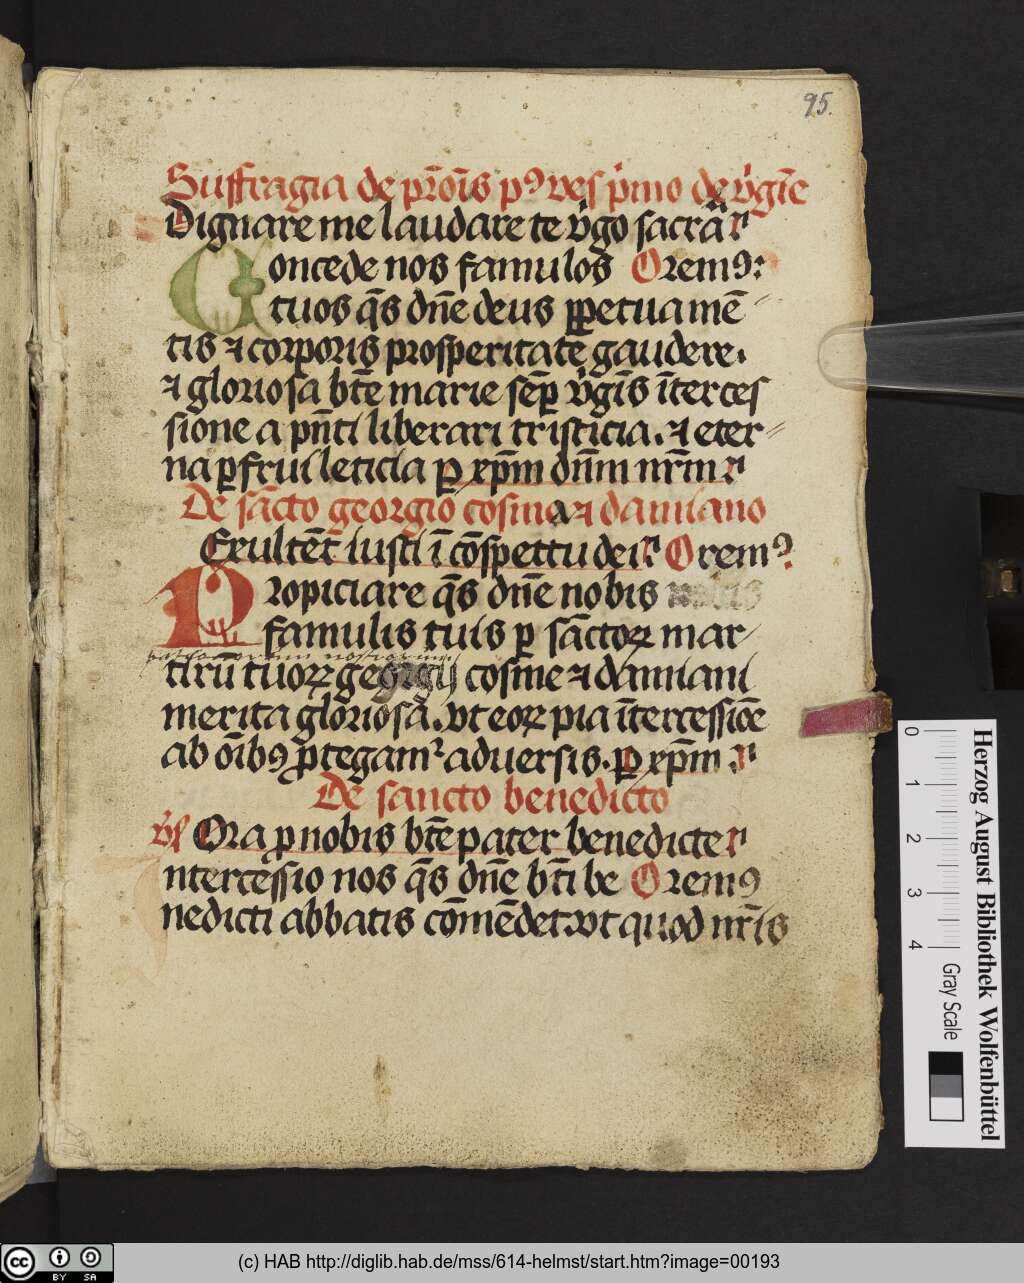 95.
Suffragia de pr̄oīs p⁹ ves p̍mo de v̍gīe
Dignare me laudare te v̍go sacrā
Concede nos famulos Orem⁹:
tuos q̄s dn̄e deus ꝑpetua mē
tis ⁊ corporis prosperitate gaudere.
⁊ gloriosa bt̄e marie semꝑ v̍gīs īterces
sione a pn̄ti liberari tristicia. ⁊ eter
na ꝑfrui leticia ꝑ xp̄m dn̄m nr̄m
De sc̄āto georgio cosma ⁊ damiano
Exultēt iusti ī cōspettu dei Orem⁹
Propiciare q̄s dn̄e nobis
famulis tuis ꝑ sāctoꝝ mar
patronorum nostrorum
tirū tuoꝝ georgij cosme ⁊ damiani
merita gloriosa. vt eoꝝ pia ītercessiōe
ab oīb⁹ ꝓtegam̃ aduersis. ꝑ xp̄m
De sancto benedicto
Ora ꝓ nobis bt̄e pater benedicte
ntercessio nos q̄s dn̄e bt̄i be Orem⁹
nedicti abbatis cōmēdet. vt quod nr̄is
0 1 2 3 4
Herzog August Bibliothek Wolfenbüttel
Gray Scale
cc BY SA
(c) HAB http://diglib.hab.de/mss/614-helmst/start.htm?image=00193